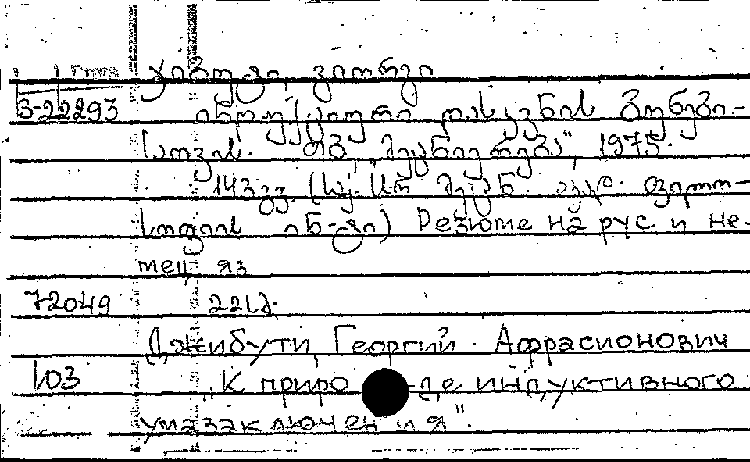 ჯიბუტი, გიორგი
3-22293 ინდუქციური დასკვნის ბუნები-
სათვის. თბ., „მეცნიერება“, 1975.
143 გვ. (საქ. სსრ მეცნ. აკად. ფილო-
სოფიის ინ-ტი) Резюме на рус. и не-
мец. яз.
72049 22 ს.
Джибути, Георгий Афрасионович
103 „К приро-де индуктивного
умазаключения".